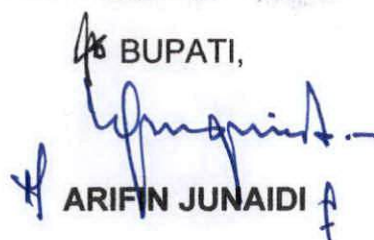 BUPATI,
ARIFIN JUNAIDI